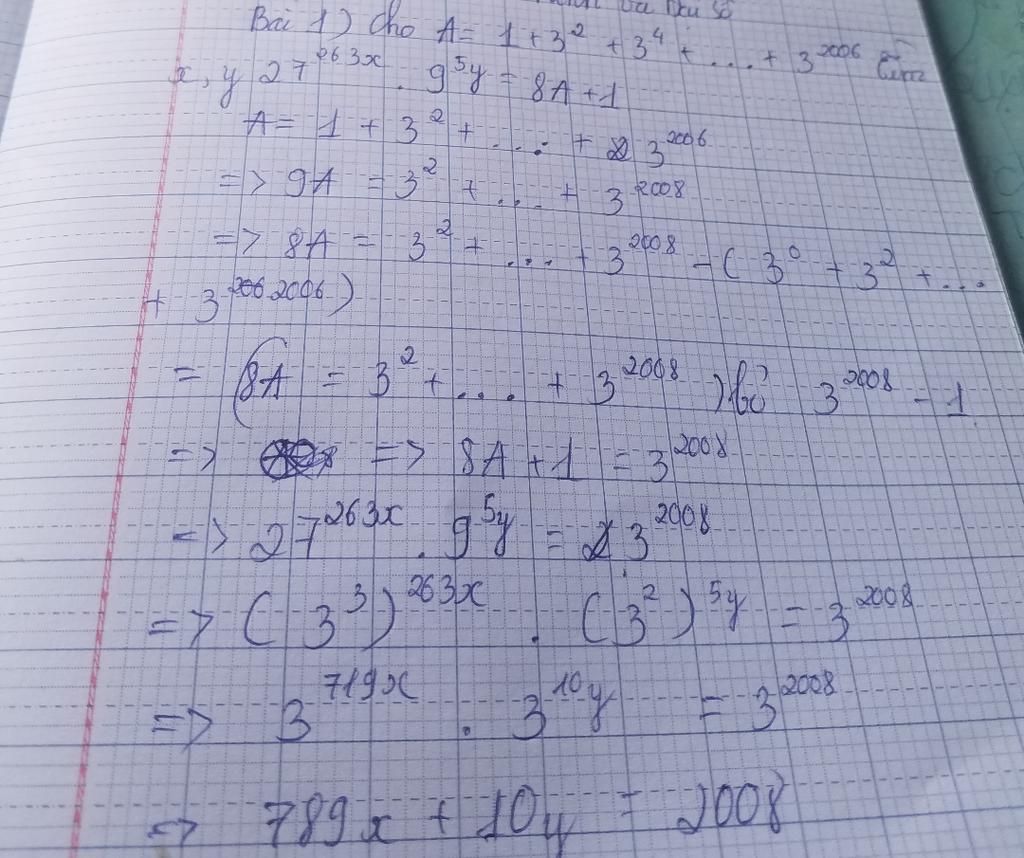 Bài 1) Cho A = 1 + 3² + 3⁴ + .... + 3²⁰⁰⁶ tìm
x, y 27²⁶³ˣ . 9⁵ʸ = 8A + 1
A = 1 + 3² + .... + 3²⁰⁰⁶
=> 9A = 3² + .... + 3²⁰⁰⁸
=> 8A = 3² + ... + 3²⁰⁰⁸ - ( 3⁰ + 3² + ...
+ 3²⁰⁰⁶ )
= (8A = 3² + .... + 3²⁰⁰⁸ ) bỏ 3²⁰⁰⁸ - 1
=> => 8A + 1 = 3²⁰⁰⁸
=> 27²⁶³ˣ . 9⁵ʸ = 3²⁰⁰⁸
=> ( 3³ )²⁶³ˣ . ( 3² )⁵ʸ = 3²⁰⁰⁸
=> 3⁷¹⁹ˣ . 3¹⁰ʸ = 3²⁰⁰⁸
=> 789x + 10y = 2008